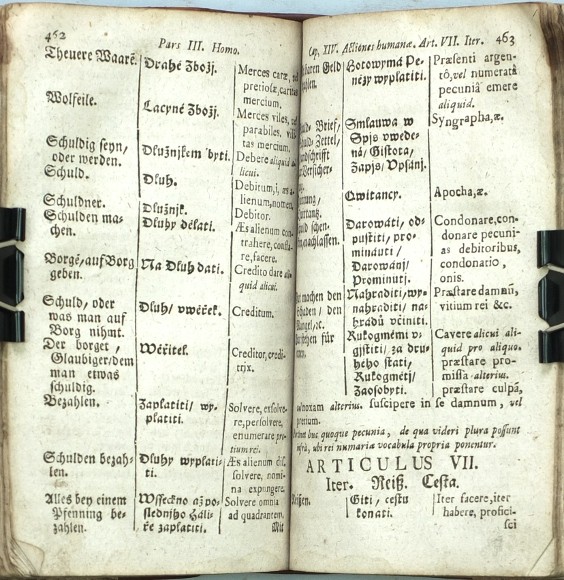 462
Pars III. Homo.
Theuere Waarẽ.
Drahé Zbožj.
Merces caræ, vel
pretiosæ, caritas
mercium.
Wolfeile.
Lacyné Zbožj.
Merces viles, vel
parabiles, vili-
tas mercium.
Schuldig seyn,
oder werden.
Dlužnjkem býti.
Debere aliquid a-
licui.
Schuld.
Dluh.
Debitum, i, æs a-
lienum, nomen.
Schuldner.
Dlužnjk.
Debitor.
Schulden ma-
chen.
Dluhy dělati.
Æs alienum con-
trahere, confla-
re, facere.
Borgẽ, auf Borg
geben.
Na Dluh dati.
Credito dare ali-
quid alicui.
Schuld, oder
was man auf
Borg nihmt.
Dluh/ vwěřek.
Creditum.
Der borget,
Glaubiger/dem
man etwas
schuldig.
Wěřitel.
Creditor, credi-
trix.
Bezahlen.
Zaplatiti/ wy-
platiti.
Solvere, exsolve-
re, persolvere,
enumerare pre-
tium rei.
Schulden bezah-
len.
Dluhy wyplati-
ti.
Æs alienum dis-
solvere, nomi-
na expungere.
Alles bey einem
Pfenning be-
zahlen.
Wsseckno až po-
slednjho Háli-
ře zaplatiti.
Solvere omnia
ad quadrantem.
Mit
Cap. XIV. Actiones humanæ. Art. VII. Iter. 463
baren Geld
Hotowýma Pe-
nězy wyplatiti.
Præsenti argen-
tô, vel numeratâ
pecuniâ emere
aliquid.
Brief,
Zettel,
Smlauwa w
Spis vwede-
ná/ Gistota/
Zapis/ Vpsánj.
Syngrapha, æ.
Qwitancy.
Apocha, æ.
Darowáti/ od-
pustiti/ pro-
minauti/
Darowánj/
Prominutj.
Condonare, con-
donare pecuni-
as debitoribus,
condonatio,
onis.
machen den
Schaden/ den
Mangel/ ꝛc.
Nahraditi/ wy-
nahraditi/ ná-
hradu včiniti.
Præstare damnũ,
vitium rei &c.
stehen für
Rukogměmi v-
gistiti/ za dru-
hého státi/
Rukogmětj/
Zaosobyti.
Cavere alicui ali-
quid pro aliquo.
præstare pro-
missa alterius.
præstare culpã,
noxam alterius. suscipere in se damnum, vel
pretium.
huc quoque pecunia, de qua videri plura possunt
infrà, ubi rei numariæ vocabula propria ponentur.
ARTICULUS VII.
Iter. Reiß. Cesta.
Reisen.
Giti/ cestu
konati.
Iter facere, iter
habere, profici-
sci